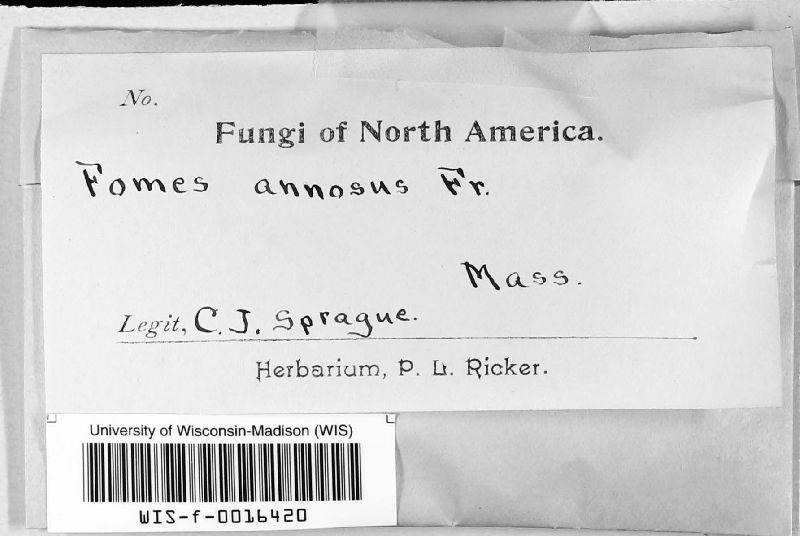 No.
Fungi of North America.
Fomes annosus Fr.
Mass.
Legit, C. J. Sprague.
Herbarium, P. L. Ricker.
University of Wisconsin-Madison (WIS)
WIS-f-0016420